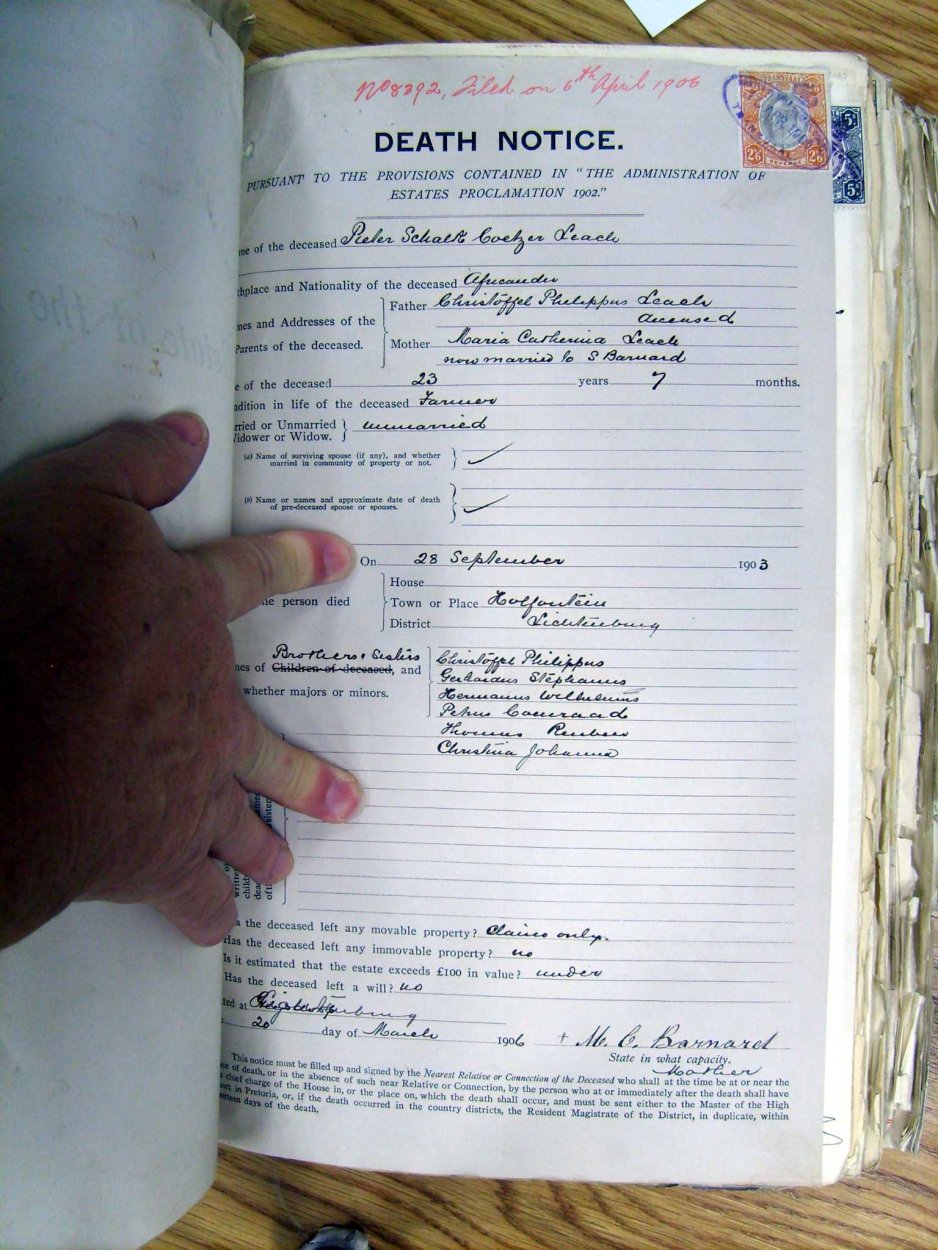 No 8392, Filed on 6th April 1906
DEATH NOTICE.
PURSUANT TO THE PROVISIONS CONTAINED IN "THE ADMINISTRATION OF
ESTATES PROCLAMATION 1902."
me of the deceased Pieter Schalk Coetzer Leach
thplace and Nationality of the deceased Africander
nes and Addresses of the
Parents of the deceased.
Father Christoffel Philippus Leach
deceased
Mother Maria Catherina Leach
now married to S Barnard
e of the deceased 23 years 7 months.
ndition in life of the deceased Farmer
rried or Unmarried
Widower or Widow.
unmarried
(a) Name of surviving spouse (if any), and whether
married in community of property or not.
(b) Name or names and approximate date of death
of pre-deceased spouse or spouses.
On 28 September 1903
he person died
House
Town or Place Holfontein
District Lichtenburg
Brothers & Sisters
nes of Children of deceased, and
whether majors or minors.
Christoffel Philippus
Gerhardus Stephanus
Hermanus Wilhelmus
Petrus Coenraad
Thomas Reuben
Christina Johanna
s the deceased left any movable property? Claims only.
Has the deceased left any immovable property? no
Is it estimated that the estate exceeds £100 in value? under
Has the deceased left a will? no
ted at Lichtenburg
20 day of March 1906 + M. C. Barnard
State in what capacity.
Mother
This notice must be filled up and signed by the Nearest Relative or Connection of the Deceased who shall at the time be at or near the
ce of death, or in the absence of such near Relative or Connection, by the person who at or immediately after the death shall have
chief charge of the House in, or the place on, which the death shall occur, and must be sent either to the Master of the High
urt in Pretoria, or, if the death occurred in the country districts, the Resident Magistrate of the District, in duplicate, within
rteen days of the death.
2/6 REVENUE 2/6
5/-
5/-